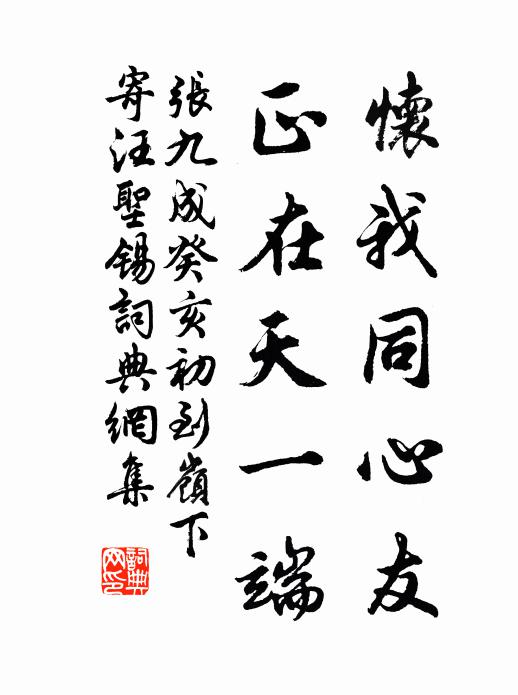 懷我同心友
正在天一端
張九成癸亥初到嶺下
寄汪聖錫詞典網集
詞典網印